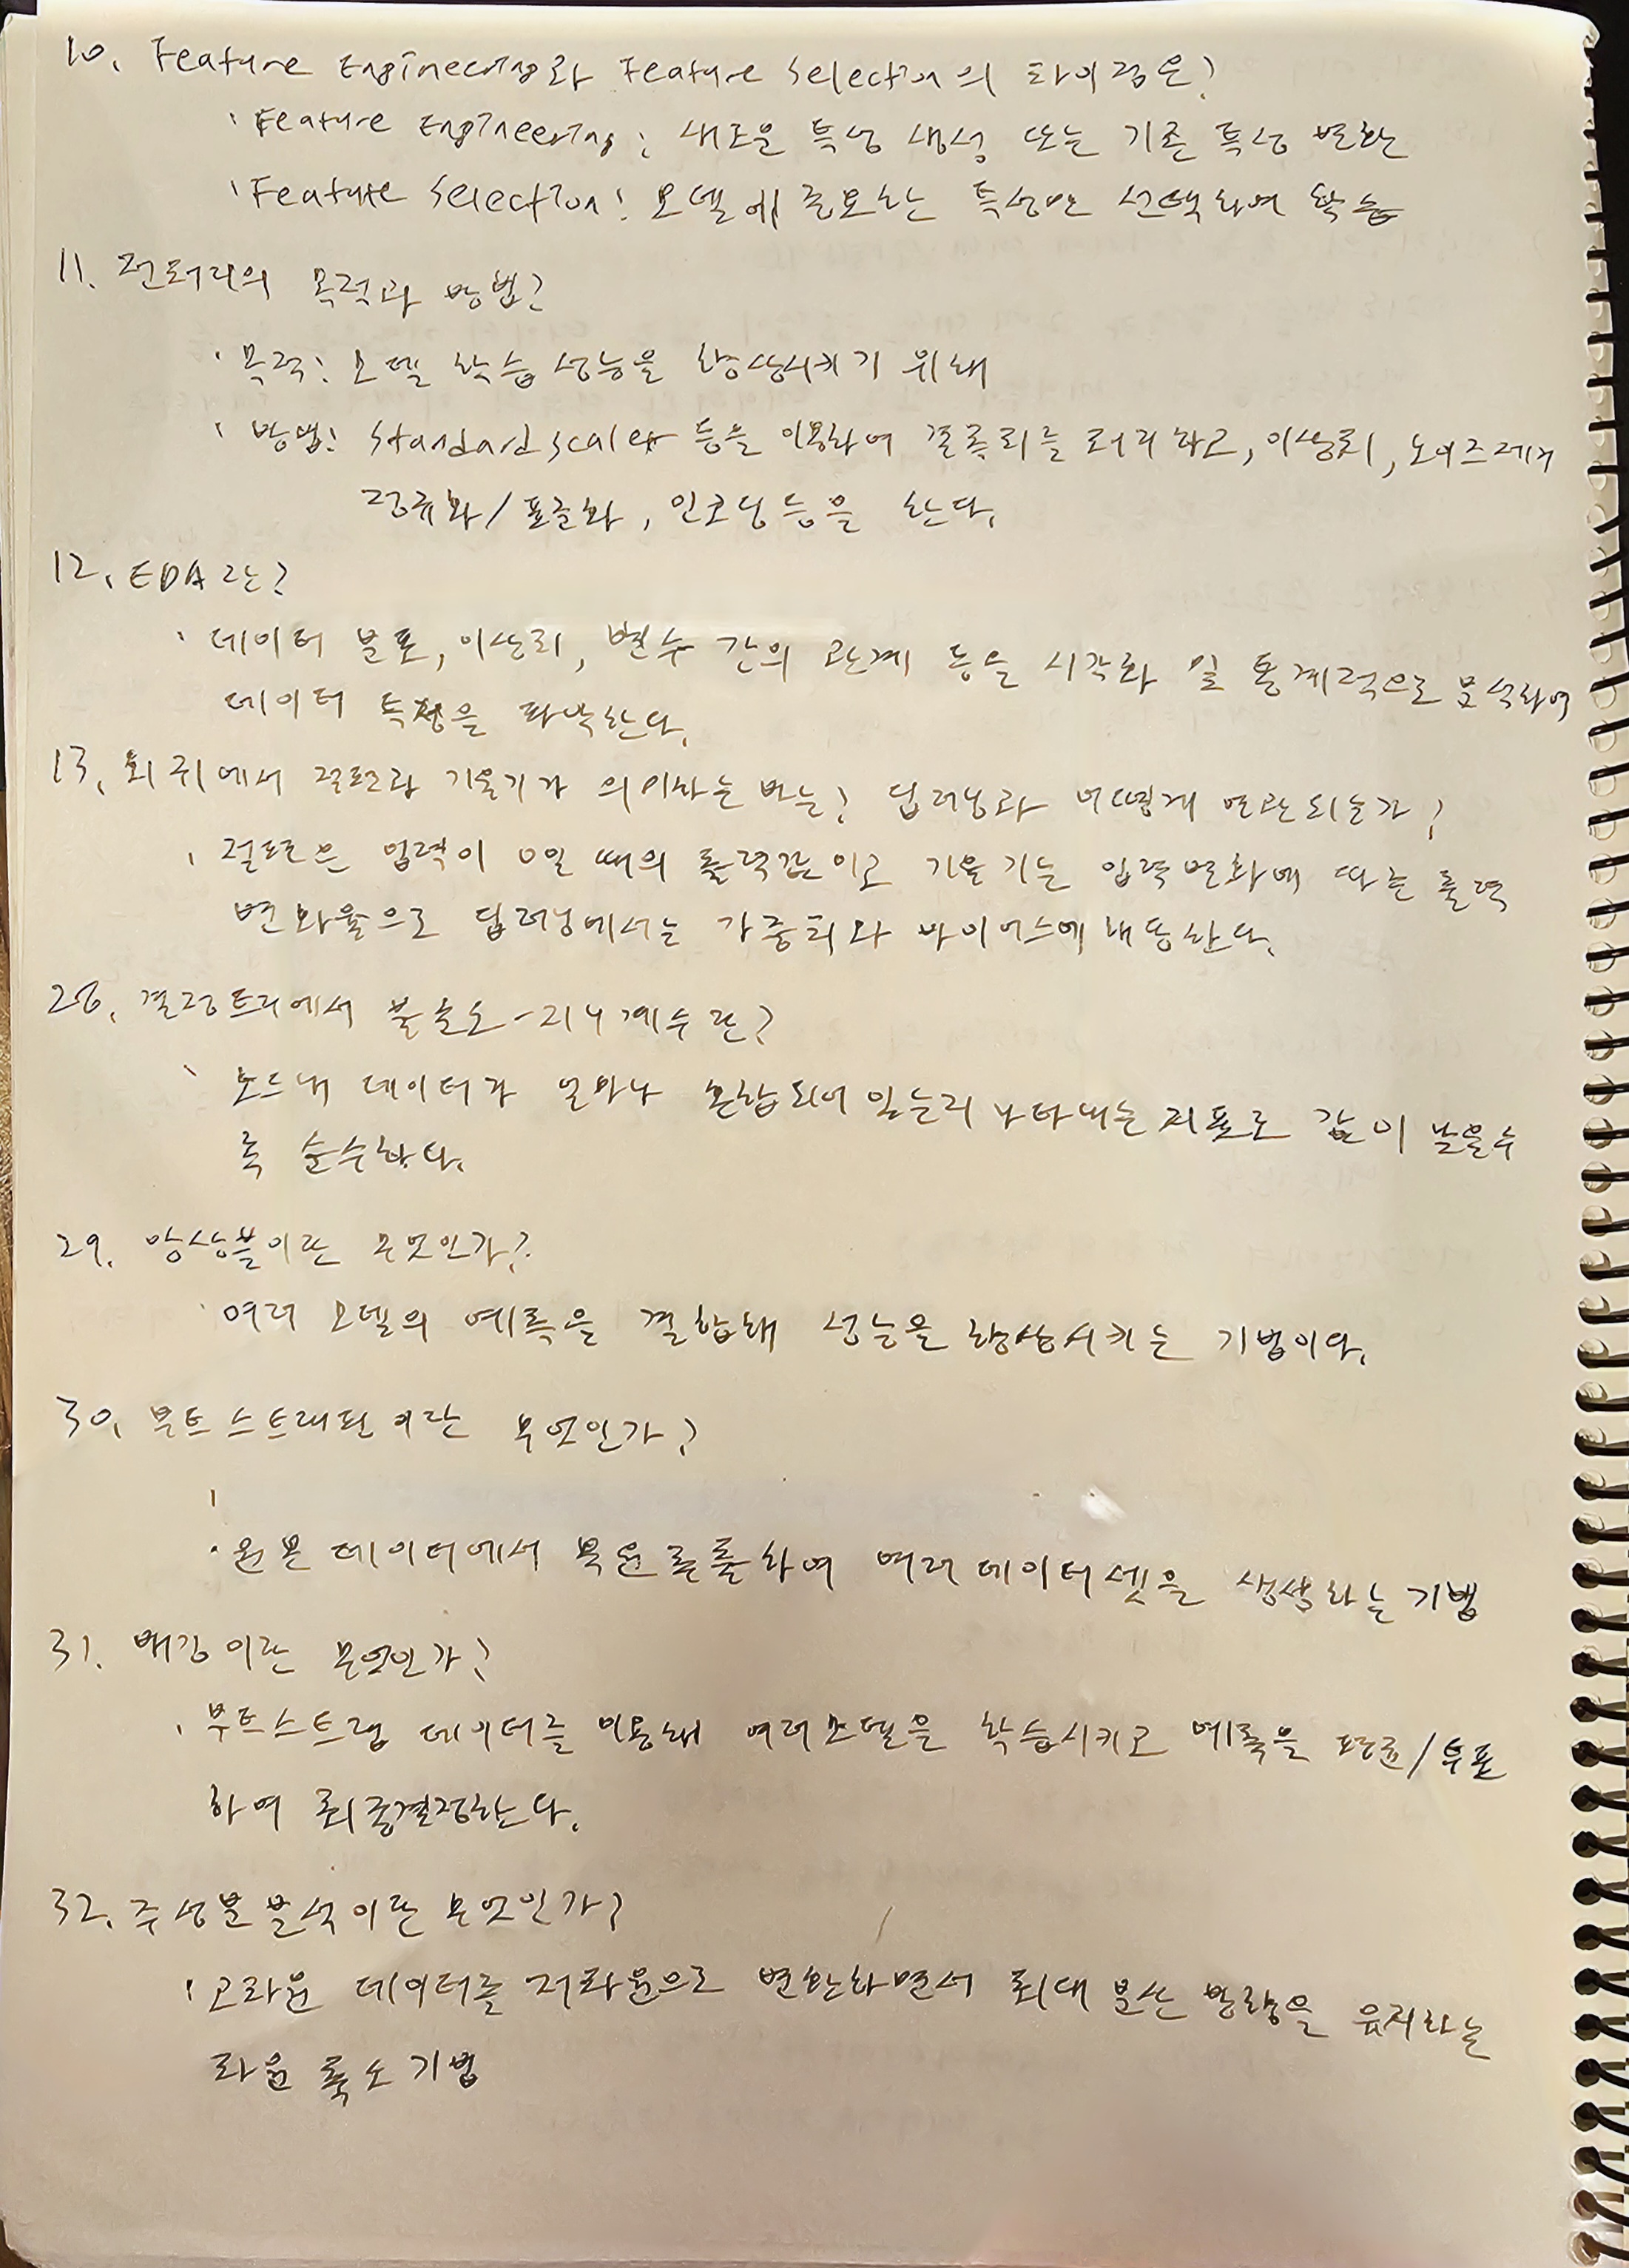 10. Feature Engineering와 Feature Selection의 차이점은?
· Feature Engineering : 새로운 특성 생성 또는 기존 특성 변환
· Feature Selection : 모델에 중요한 특성만 선택하여 학습
11. 전처리의 목적과 방법?
· 목적: 모델 학습 성능을 향상시키기 위해
· 방법: Standard Scaler 등을 이용하여 결측치를 처리하고, 이상치, 노이즈제거
정규화/표준화, 인코딩등을 한다.
12. EDA란?
· 데이터 분포, 이상치, 변수 간의 관계 등을 시각화 및 통계적으로 분석하여
데이터 특징을 파악한다.
13. 회귀에서 절편과 기울기가 의미하는 바는? 딥러닝과 어떻게 연관되는가?
· 절편은 입력이 0일 때의 출력값이고 기울기는 입력변화에 따른 출력
변화율으로 딥러닝에서는 가중치와 바이어스에 대응한다.
28. 결정트리에서 불순도-지니계수란?
· 노드내 데이터가 얼마나 혼합되어 있는지 나타내는 지표로 값이 낮을수
록 순수하다.
29. 앙상블이란 무엇인가?
· 여러 모델의 예측을 결합해 성능을 향상시키는 기법이다.
30. 부트스트래핑이란 무엇인가?
· 원본 데이터에서 복원추출하여 여러데이터셋을 생성하는 기법
31. 배깅이란 무엇인가?
· 부트스트랩 데이터를 이용해 여러모델을 학습시키고 예측을 평균/투표
하여 최종결정한다.
32. 주성분 분석이란 무엇인가?
· 고차원 데이터를 저차원으로 변환하면서 최대 분산 방향을 유지하는
차원 축소 기법